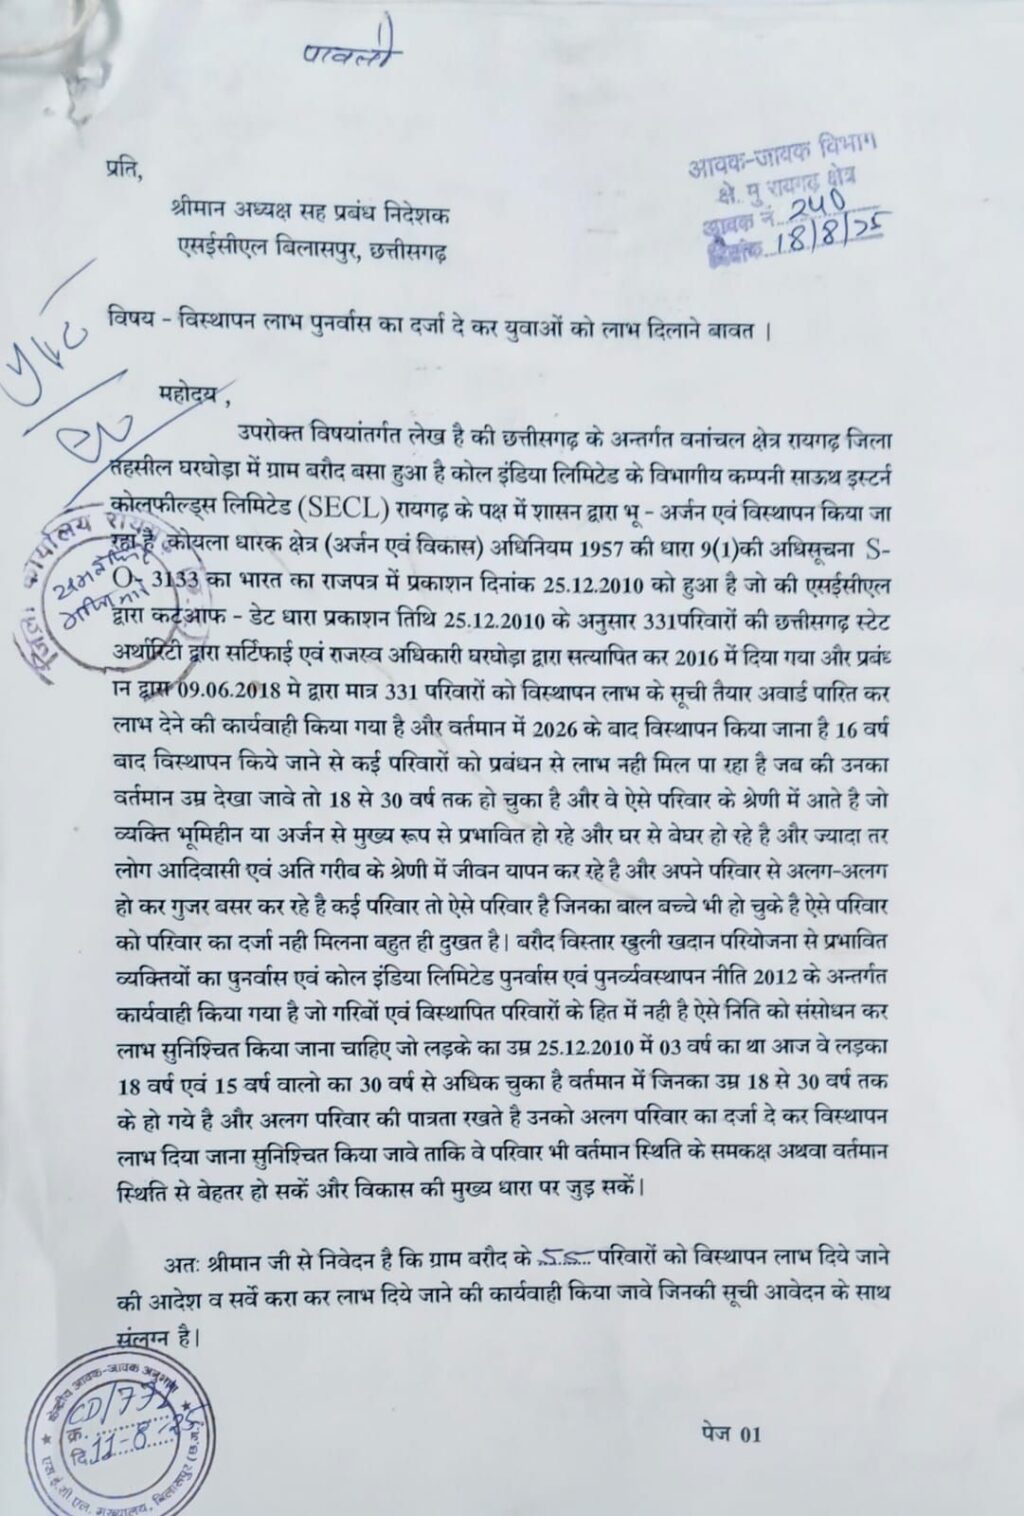 पावती
प्रति,
आवक-जावक विभाग
क्षे. पु रायगढ़ क्षेत्र
आवक नं. 240
दिनांक 18/8/25
श्रीमान अध्यक्ष सह प्रबंध निदेशक
एसईसीएल बिलासपुर, छत्तीसगढ़
विषय - विस्थापन लाभ पुनर्वास का दर्जा दे कर युवाओं को लाभ दिलाने बावत ।
महोदय ,
उपरोक्त विषयांतर्गत लेख है की छत्तीसगढ़ के अन्तर्गत वनांचल क्षेत्र रायगढ़ जिला
तहसील घरघोड़ा में ग्राम बरौद बसा हुआ है कोल इंडिया लिमिटेड के विभागीय कम्पनी साऊथ इस्टर्न
कोलफील्ड्स लिमिटेड (SECL) रायगढ़ के पक्ष में शासन द्वारा भू - अर्जन एवं विस्थापन किया जा
रहा है, कोयला धारक क्षेत्र (अर्जन एवं विकास) अधिनियम 1957 की धारा 9(1)की अधिसूचना S-
O- 3133 का भारत का राजपत्र में प्रकाशन दिनांक 25.12.2010 को हुआ है जो की एसईसीएल
द्वारा कटआफ - डेट धारा प्रकाशन तिथि 25.12.2010 के अनुसार 331परिवारों की छत्तीसगढ़ स्टेट
अर्थारिटी द्वारा सर्टिफाई एवं राजस्व अधिकारी घरघोड़ा द्वारा सत्यापित कर 2016 में दिया गया और प्रबंध
ान द्वारा 09.06.2018 मे द्वारा मात्र 331 परिवारों को विस्थापन लाभ के सूची तैयार अवार्ड पारित कर
लाभ देने की कार्यवाही किया गया है और वर्तमान में 2026 के बाद विस्थापन किया जाना है 16 वर्ष
बाद विस्थापन किये जाने से कई परिवारों को प्रबंधन से लाभ नही मिल पा रहा है जब की उनका
वर्तमान उम्र देखा जावे तो 18 से 30 वर्ष तक हो चुका है और वे ऐसे परिवार के श्रेणी में आते है जो
व्यक्ति भूमिहीन या अर्जन से मुख्य रूप से प्रभावित हो रहे और घर से बेघर हो रहे है और ज्यादा तर
लोग आदिवासी एवं अति गरीब के श्रेणी में जीवन यापन कर रहे है और अपने परिवार से अलग-अलग
हो कर गुजर बसर कर रहे है कई परिवार तो ऐसे परिवार है जिनका बाल बच्चे भी हो चुके है ऐसे परिवार
को परिवार का दर्जा नही मिलना बहुत ही दुखत है। बरौद विस्तार खुली खदान परियोजना से प्रभावित
व्यक्तियों का पुनर्वास एवं कोल इंडिया लिमिटेड पुनर्वास एवं पुनर्व्यवस्थापन नीति 2012 के अन्तर्गत
कार्यवाही किया गया है जो गरिबों एवं विस्थापित परिवारों के हित में नही है ऐसे निति को संसोधन कर
लाभ सुनिश्चित किया जाना चाहिए जो लड़के का उम्र 25.12.2010 में 03 वर्ष का था आज वे लड़का
18 वर्ष एवं 15 वर्ष वालो का 30 वर्ष से अधिक चुका है वर्तमान में जिनका उम्र 18 से 30 वर्ष तक
के हो गये है और अलग परिवार की पात्रता रखते है उनको अलग परिवार का दर्जा दे कर विस्थापन
लाभ दिया जाना सुनिश्चित किया जावे ताकि वे परिवार भी वर्तमान स्थिति के समकक्ष अथवा वर्तमान
स्थिति से बेहतर हो सकें और विकास की मुख्य धारा पर जुड़ सकें।
अतः श्रीमान जी से निवेदन है कि ग्राम बरौद के 55 परिवारों को विस्थापन लाभ दिये जाने
की आदेश व सर्वे करा कर लाभ दिये जाने की कार्यवाही किया जावे जिनकी सूची आवेदन के साथ
संलग्न है।
केन्द्रीय आवक-जावक अनुभाग
क्र. CD/772
दि. 11-8-25
एस.ई.सी.एल. मुख्यालय, बिलासपुर (छ.ग.)
पेज 01